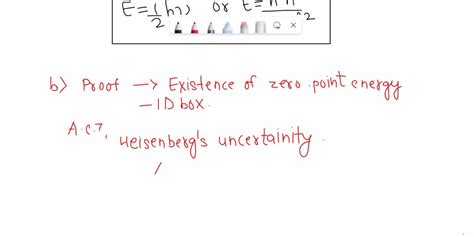 E = 1/2 hν or E =
b) Proof → Existence of zero point energy
– 1D box.
A.C.7,
Heisenberg's uncertainity.